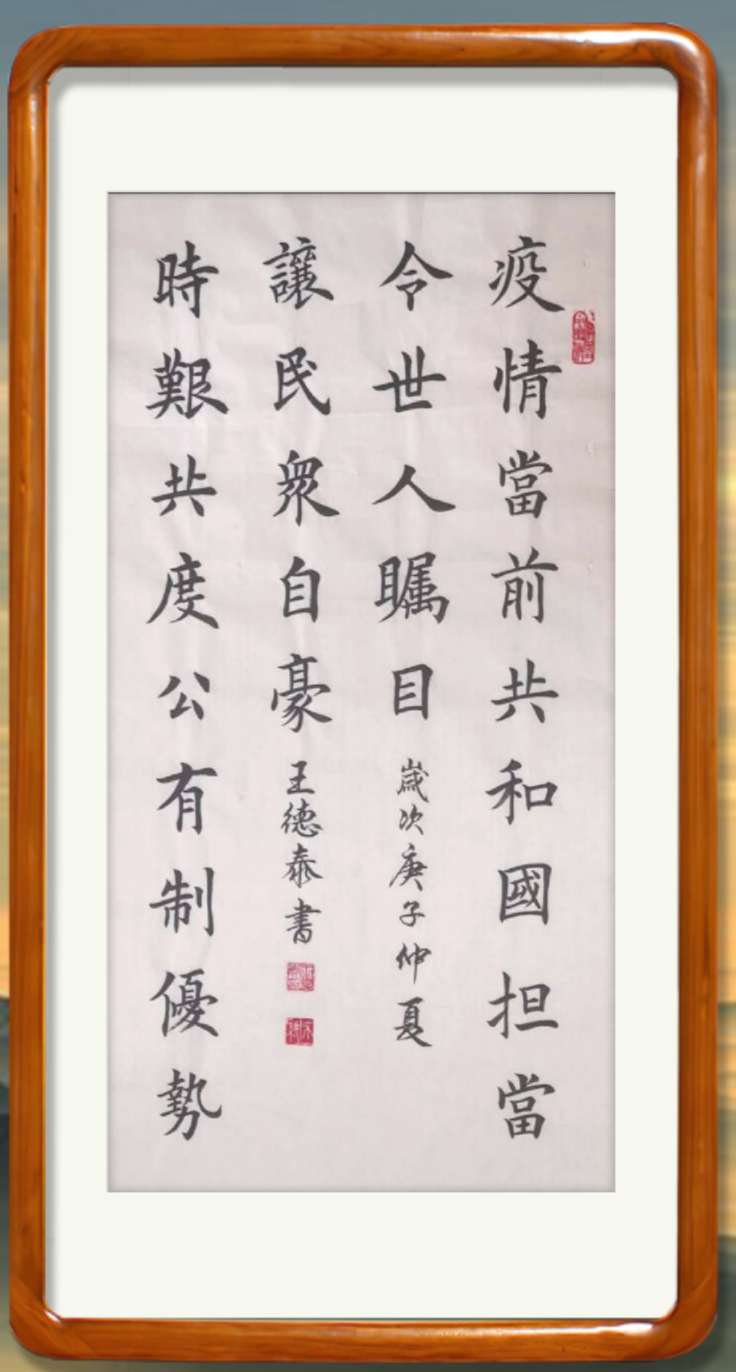 疫情當前共和國担當
令世人瞩目
歲次庚子仲夏
時艱共度公有制優勢
讓民衆自豪
王德泰書